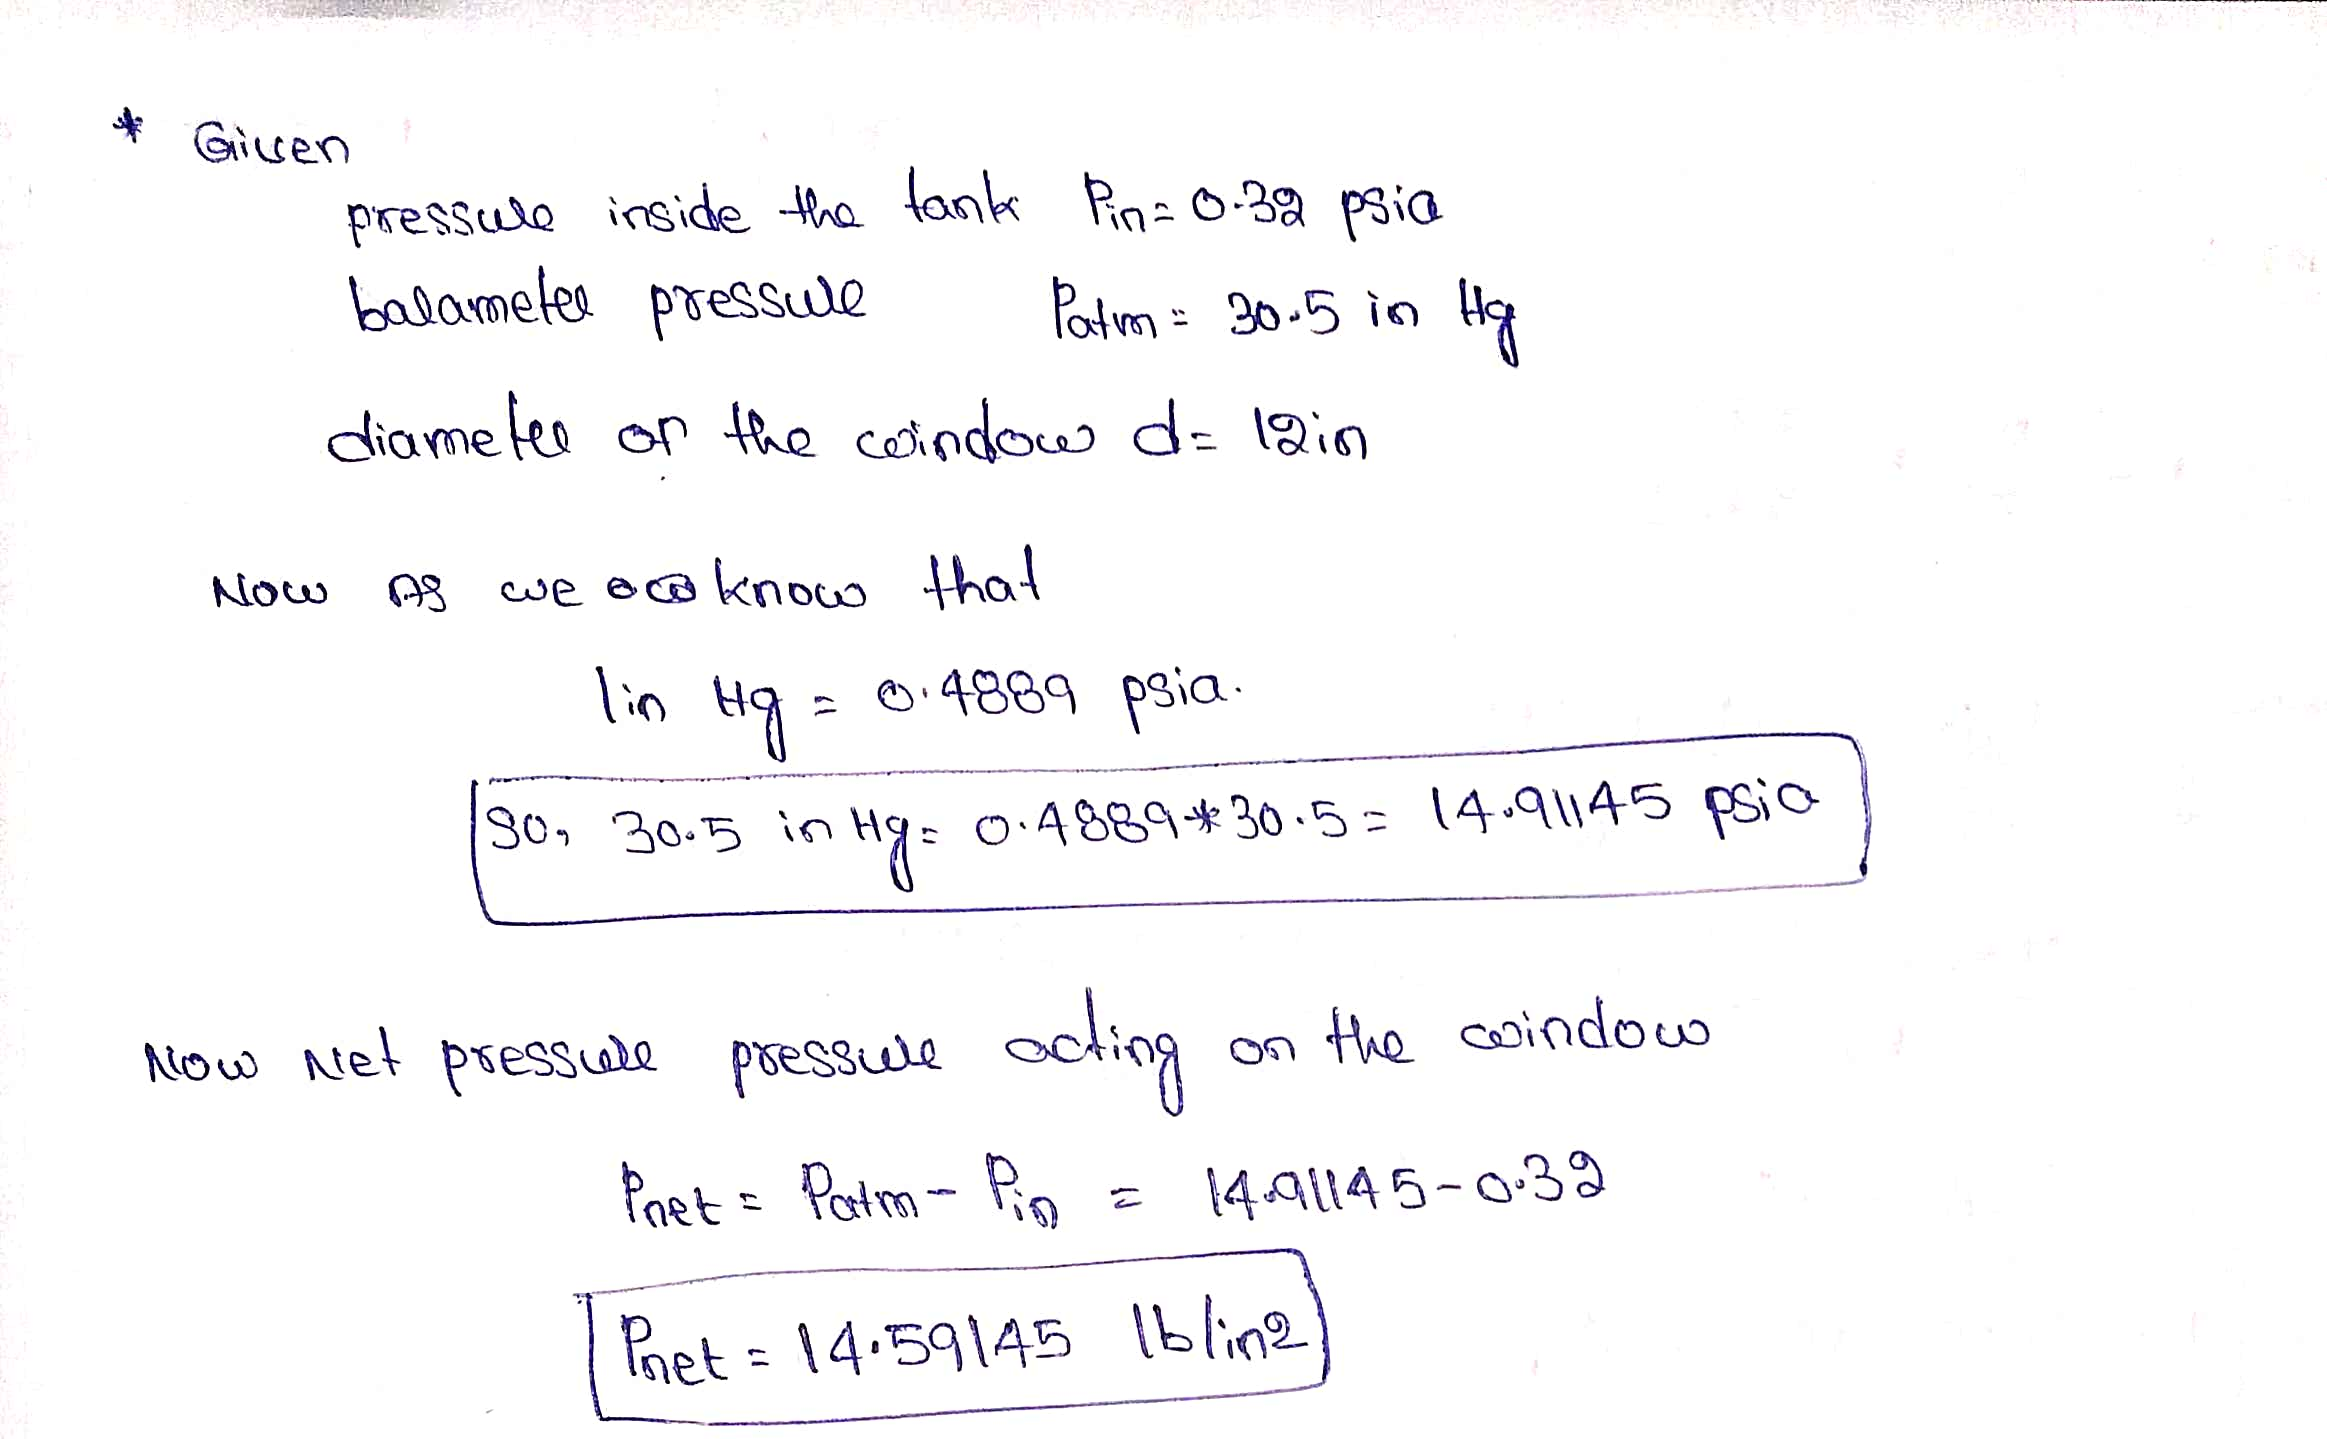 * Given
pressure inside the tank Pin = 0.32 psia
barameter pressure Patm = 30.5 in Hg
diameter of the window d = 12in
Now As we know that
1in Hg = 0.4889 psia.
So, 30.5 in Hg = 0.4889*30.5 = 14.91145 psia
Now Net pressure pressure acting on the window
Pnet = Patm - Pin = 14.91145-0.32
Pnet = 14.59145 lb/in2